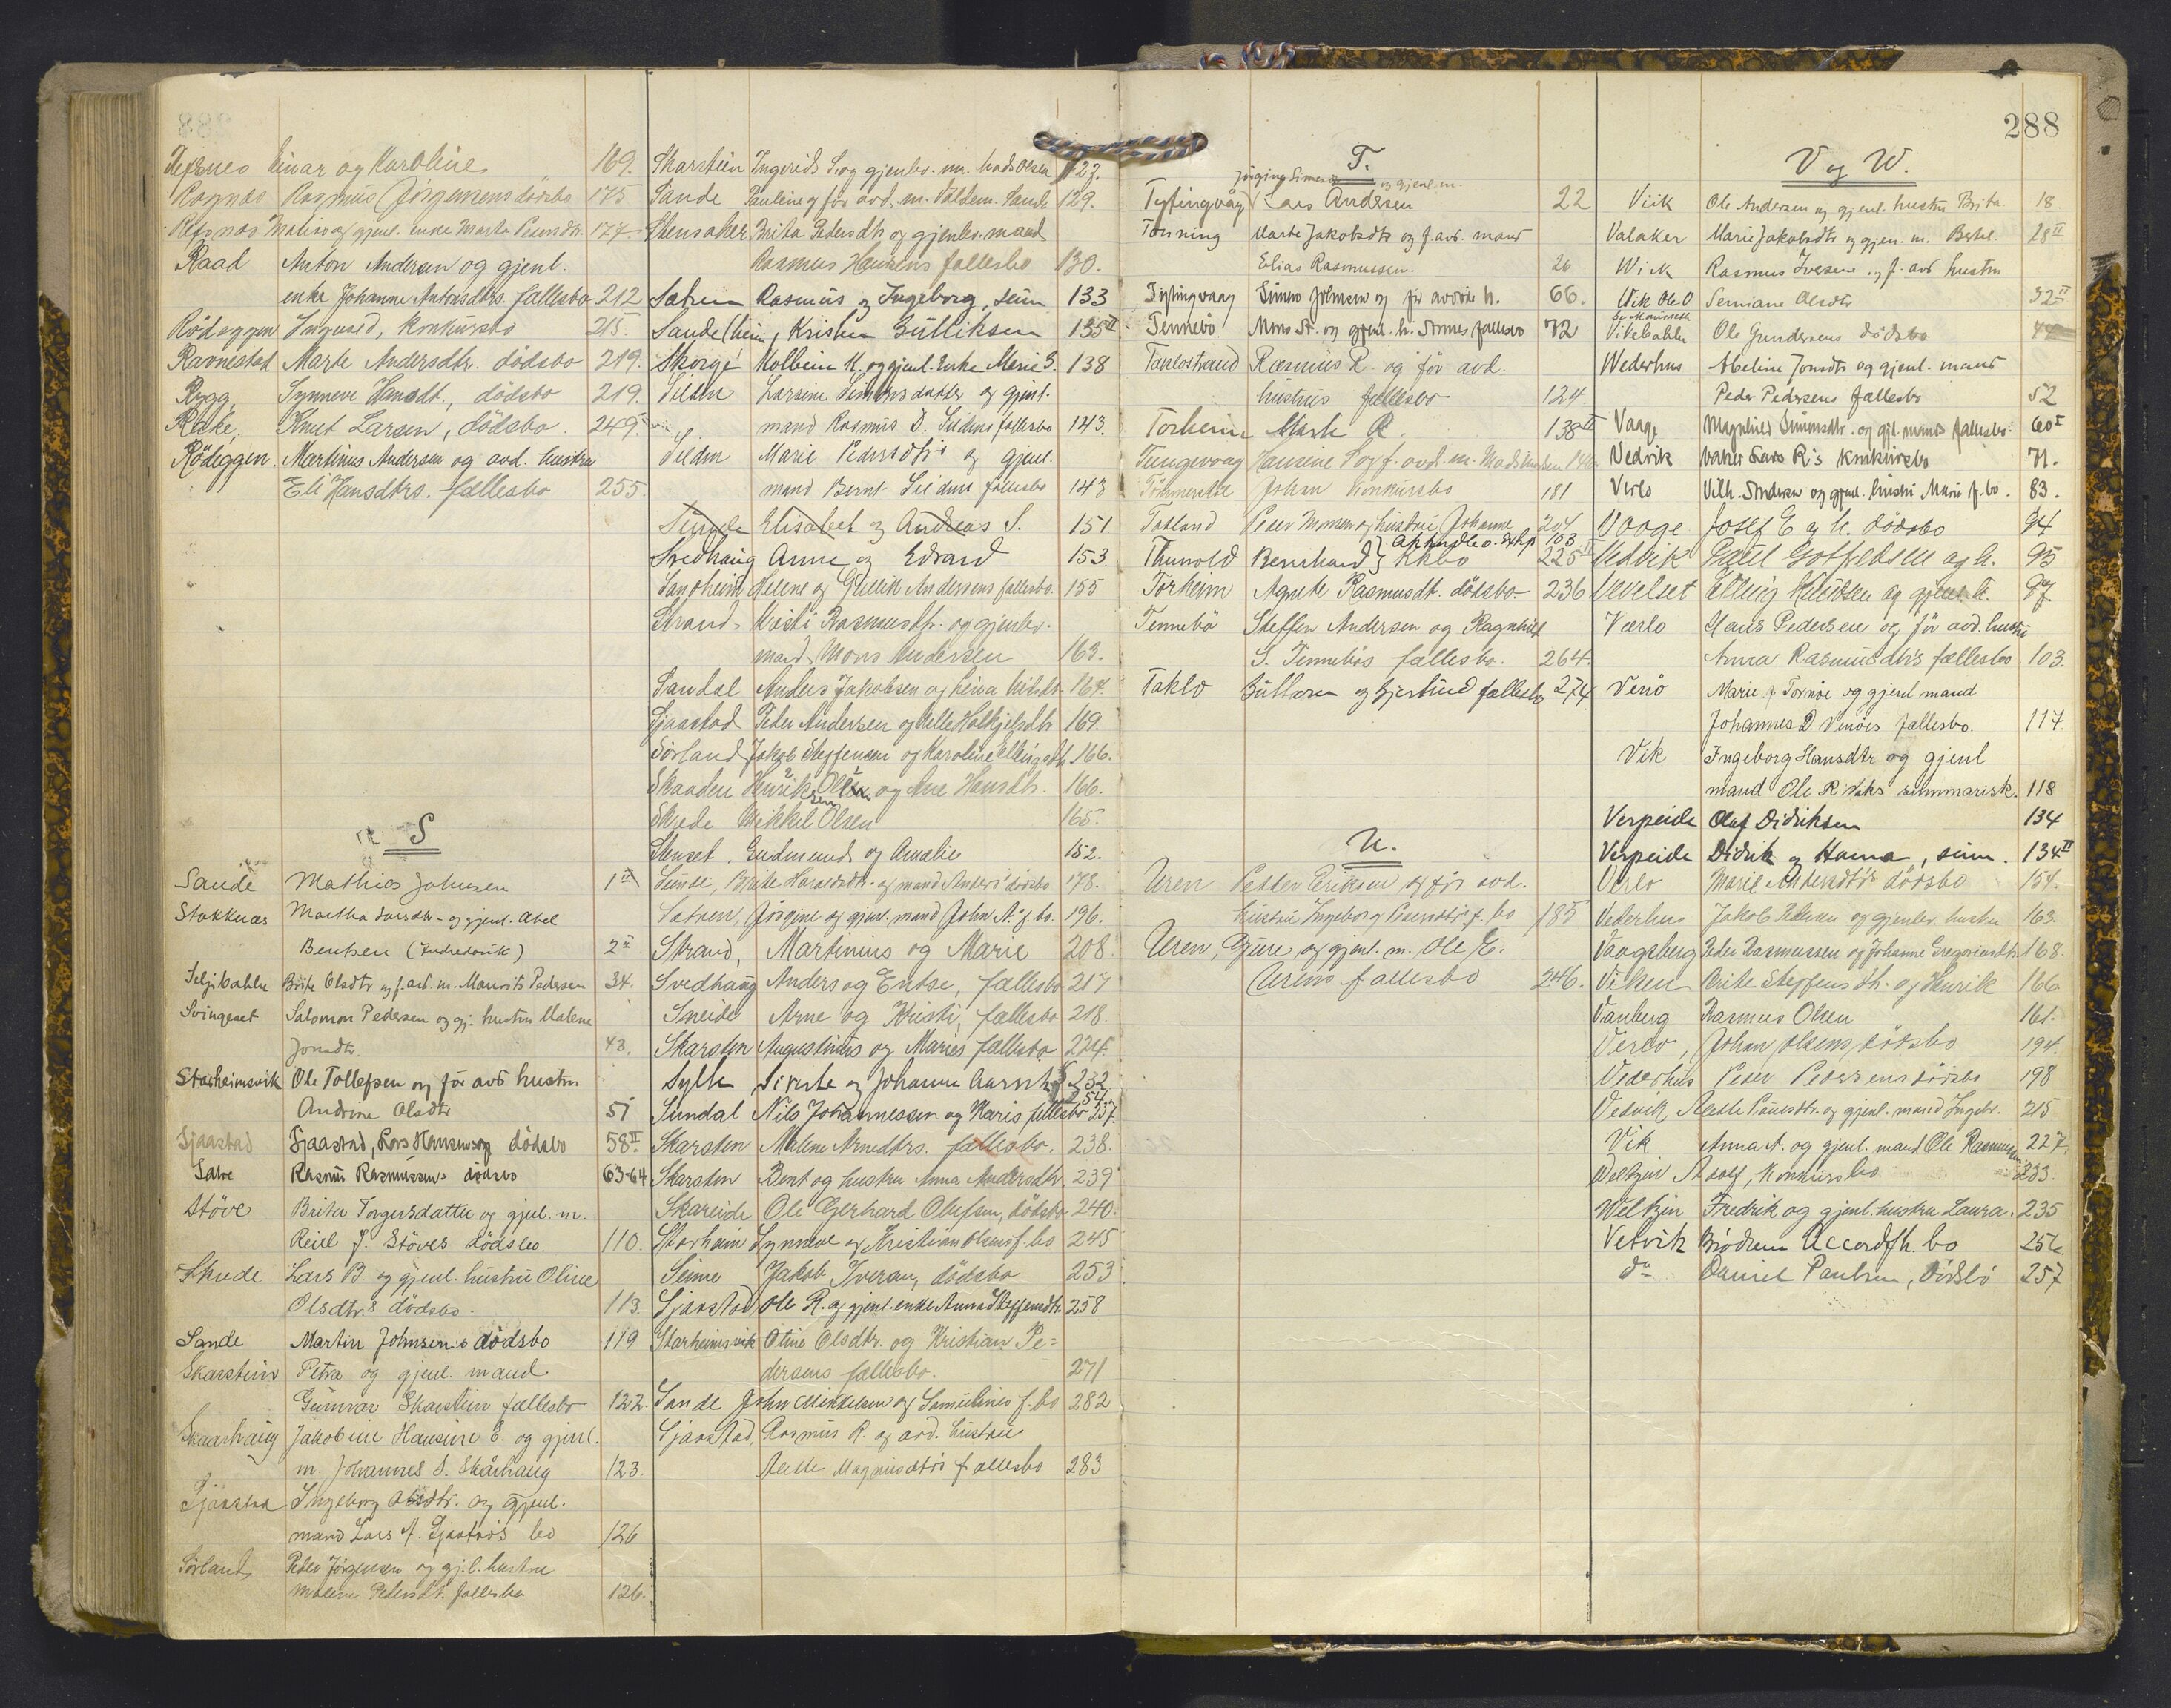 Refsnes Einar og Karoline 169.
Rognes Rasmus Jørgensens dödsbo 175
Refsnes og gjenl. enke Marta 177
Raad Anton Andersen og gjenl.
enke Johanne Antonsdtrs. fællesbo 212
Rödeggen Ingvard, konkursbo 215.
Ravnestad Marte Andersdtr. dödsbo 219.
Rygg Synneve Hansdt., dödsbo 219.
Rake, Knut Larsen, dödsbo. 249.
Rödeggen. Martinus Andersen og avd. hustru
Eli Hansdtrs. fællesbo 255.
S
Sande Mathias Johnsen 1 II
Stokknes Martha Larsdtr. og gjenl. Abel
Bentsen (Indrehovik) 2
Seljebakke Brite Olsdtr og f. avd. m. Maurits Pedersen 34.
Svingeset Salomon Pedersen og gj. hustru Malene
Jonsdtr. 43.
Starheimsvik Ole Tollefsen og för avd hustru
Andrine Olsdtr 51
Sjaastad Sjaastad, Lars Hansens dödsbo 58 II
Satre Rasmus Rasmussens dödsbo 63-64
Støve Brita Torgersdatter og gjenl. m.
Reiel J. Støves dödsbo. 110.
Skrede Lars B. og gjenl. hustru Oline
Olsdtr.s dödsbo. 113.
Sande Martin Johnsens dödsbo 119
Skarstein Petra og gjenl. mand
Gunnar Skarstein fællesbo 122.
Skaarhaug Jakobine Hansine E. og gjenl.
m. Johannes S. Skårhaug 123.
Sjaastad Ingeborg Olsdtr. og gjenl.
mand Lars A. Sjaastads bo 126
Sørland, Peder Jørgensen og gj.l. hustru
Malene Pedersdt. fællesbo 126.
Skarstein Ingerid S. og gjenlev. m. Mads Olsen 127.
Sande Pauline og för avd. m. Valdem. Sande 129.
Stensaker Brita Pedersdtr og gjenlev. mand
Rasmus Hansens fællesbo 130.
Satren Rasmus og Ingeborg, sum 133
Sande (heim), Kristen Gulliksen 135 II
Skorge Kolbein K. og gjenl. Enke Marie S. 138
Silden Larsine Simonsdatter og gjenl.
mand Rasmus D. Sildens fællesbo 143.
Silden Marie Pedersdtrs og gjenl.
mand Bernt Sildens fællesbo 143
Sunde Elisabet og Andreas S. 151
Svedhaug Anne og Edvard 153.
Sandheim Helene og Gullik Andersens fællesbo. 155
Strand Kristi Rasmusdtr. og gjenlev.
mand Mons Andersen 163.
Sandal Anders Jakobsen og Nilsdtr 164.
Sjaastad Peder Andersen og 169.
Sørland Jakob Steffensen og Karoline Ellingsdt. 166.
Skaaden Henrik Olsen og Ane Hansdtr. 166.
Skrede Mikkel Olsen 165.
Stenset. Gudmund og Amalie 152.
Sunde, Brite Haraldsdtr. og mand Anders dödsbo 178.
Satren, Jørgine og gjenl. mand John A.s f. bo. 196.
Strand, Martinius og Marie 208.
Svedhaug Anders og Entse, fællesbo 217
Sneide Arne og Kristi, fællesbo 218.
Skarsten Augustinus og Maries fællesbo 224.
Sylte Siverte og Johanne 232
254
Sundal Nils Johannessen og Karis fellesbo 237.
Skarsten Malene Arnedtrs. fællesbo. 238.
Skarsten Bent og hustru Anna Andersdtr. 239
Skareide Ole Gerhard Olufsen, dödsbo 240.
Starheim Synneve og Kristian Olsens f. bo 245
Seime Jakob Iversen, dödsbo 253
Sjaastad Ole R. og gjenl. enke Anna Steffensdtr. 258
Starheimsvik Oline Olsdtr. og Kristian Pe=
dersens fællesbo. 271
Sande John Mikkelsen og Samulines f. bo 282
Sjaastad, Rasmus R. og avd. hustru
Aslle Magnusdtrs fællesbo 283
288
T.
Jørgine Simes og gjenl. m.
Tytingvåg Lars Andersen 22
Tonning Marte Jakobsdtr og f. avd. mand
Elias Rasmussen. 26
Tytingvaag Simon Johnsen og för avdöde h. 66.
Tennebö Mons St. og gjenl. h. fællesbo 72
Taklostrand Rasmus R. og för avd.
hustrus fællesbo 124
Torheim Mark R. 138 II
Tungevaag Hansine S og f. avd. m. Mads 146
Johan konkursbo 181
Takland Peder Monsen og hustru Johanne 204
Akkordbo. 103
Thunold Bernhard } Kkbo 225 II
Torheim Agnete Rasmusdt. dödsbo. 236
Tennebö Steffen Andersen og Ragnhild
S. Tennebös fællesbo. 264.
Taklo Guttorm og Gjertrud fællesbo 274
U.
Uren Petter Eriksen og för avd.
hustru Ingeborg Pedersdtrs f. bo 185
Uren, Guri og gjenl. m. Ole E.
Urens fællesbo 246.
V og W.
Viik Ole Andersen og gjenl. hustru Brita 18.
Valaker Marie Jakobsdtr og gjen. m. Bertel. 28 II
Wik Rasmus Iversen og f. avd hustru
Wik Ole O Semiane Olsdtr 32 II
Vikebakke Ole Gundersens dödsbo 44
Wederhus Abeline Jonsdtr og gjenl. mand
Peder Pedersens fællesbo 52
Vaage Magnhild Simonsdtr. og gjl. mands fællesbo. 60 I
Vedvik Baker Lars R's konkursbo 71.
Verlo Vilh. Andersen og gjenl. hustru Marie f. bo. 83.
Vaage Josef E og h. dödsbo 94
Vedvik Paul Gotfredsen og h. 95
Vevelset Elling og gjenl. h. 97
Værlo Hans Pedersen og för avd. hustru
Anna Rasmusdtrs fællesbo 103.
Venö Marie f. Tornøe og gjenl mand
Johannes D Venöes fællesbo. 117.
Vik Ingeborg Hansdtr og gjenl
mand Ole R Viks summarisk. 118
Verpeide Oluf Didriksen 134
Verpeide Didrik og Hanna, sum. 134 II
Verlo Marie Andersdtrs dödsbo 154.
Vederhus Jakob Pedersen og gjenlev. hustru 163.
Vaagsberg Peder Rasmussen og Johanne Gregoriusdtr. 168.
Viken Brite Steffensdtr. og Henrik 166
Vanberg Rasmus Olsen 161.
Verlo, Johan Olsens dödsbo 194.
Vederhus Peder Pedersens dödsbo 198
Vedvik, Paulsdtr. og gjenl. mand Ingebr. 215
Vik Anna A. og gjenl. mand Ole Rasmussen 227.
Weltzin Adolf, konkursbo 233.
Weltzin Fredrik og gjenl. hustru Laura. 235
Vetvik Brødrene Accordfh. bo 256.
do Daniel Paulsen, Dödsbo 257